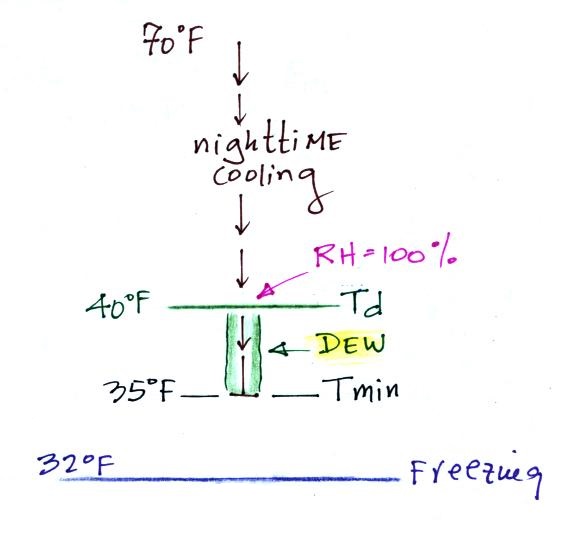 70°F
nighttiME
cooling
RH=100%
40°F Td
DEW
35°F Tmin
32°F Freezing